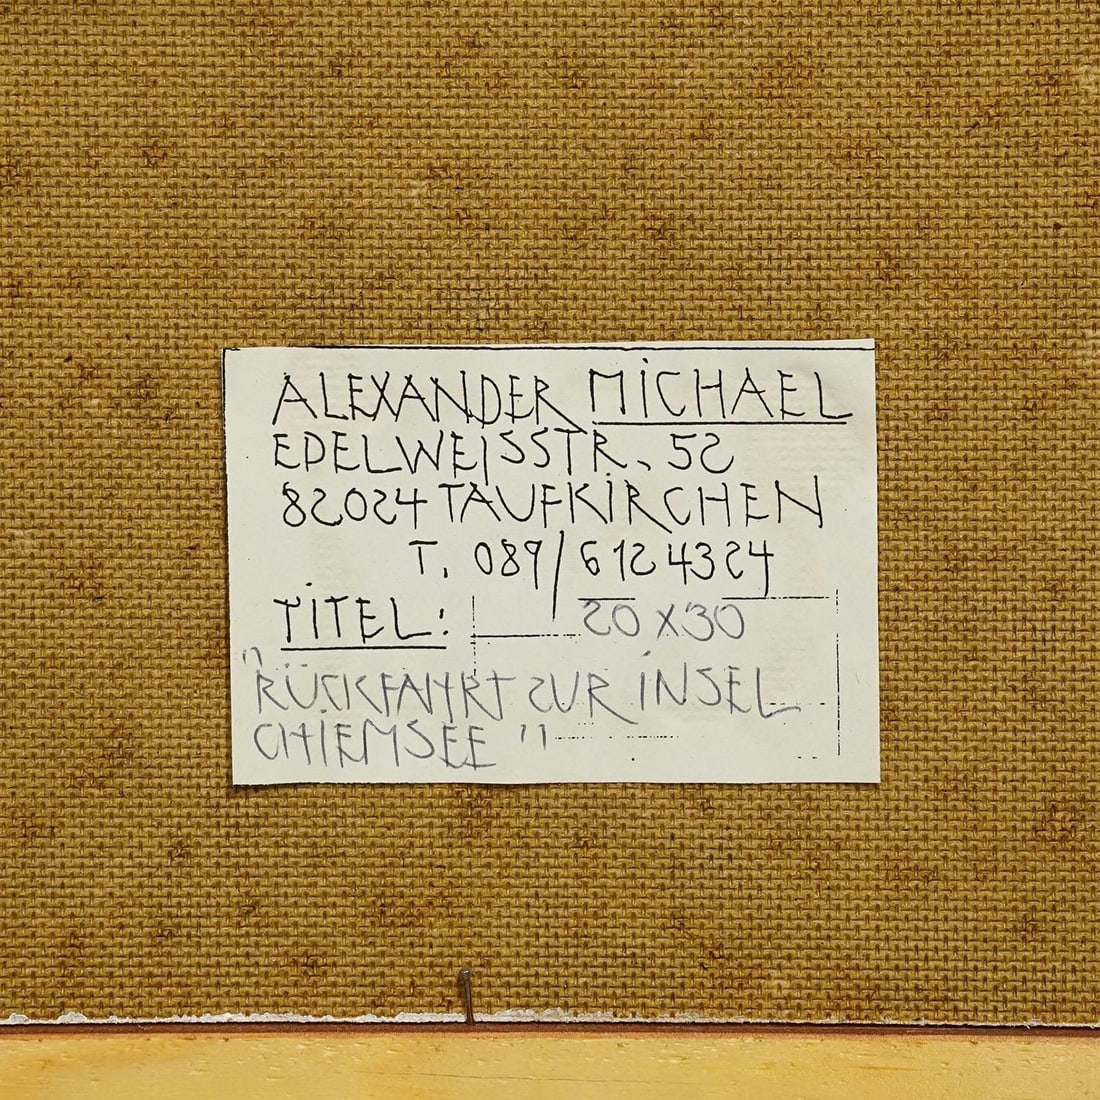 ALEXANDER MICHAEL
EDELWEISSTR. 52
82024 TAUFKIRCHEN
T. 089/6124324
TITEL: 20 x 30
"RÜCKFAHRT ZUR INSEL
CHIEMSEE"